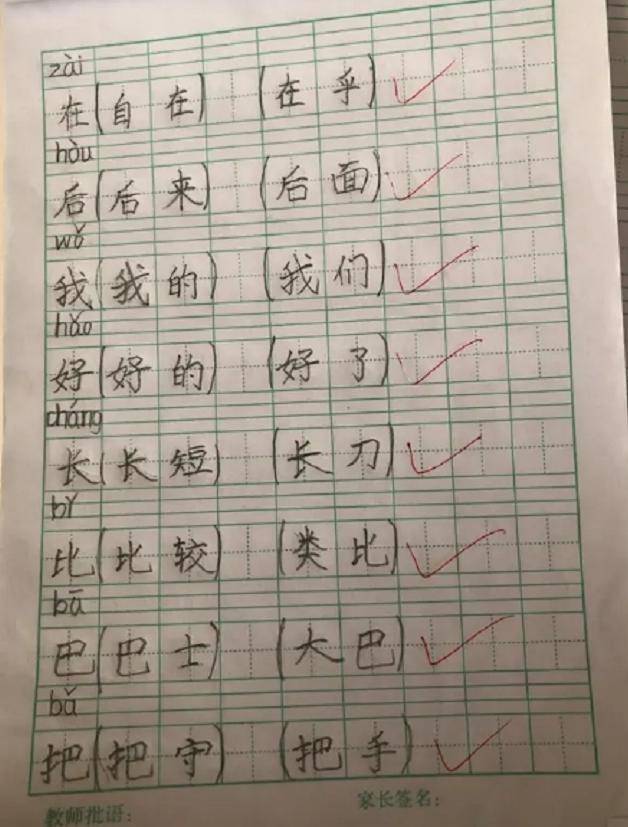 zài
在(自在) (在乎)
hòu
后(后来) (后面)
wǒ
我(我的) (我们)
hǎo
好(好的) (好了)
cháng
长(长短) (长刀)
bǐ
比(比较) (类比)
bā
巴(巴士) (大巴)
bǎ
把(把守) (把手)
教师批语: 家长签名: